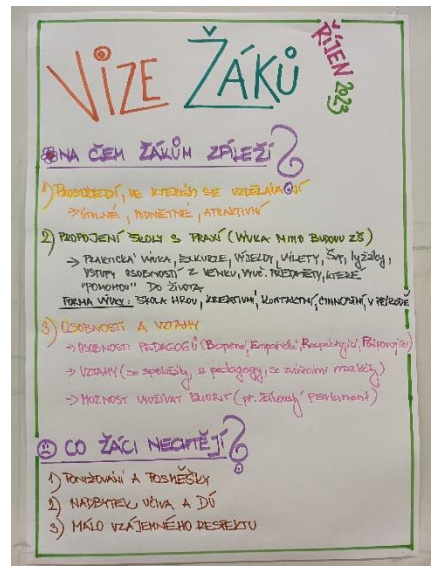 VIZE ŽÁKŮ
ŘÍJEN 2023
NA ČEM ŽÁKŮM ZÁLEŽÍ?
1) PROSTŘEDÍ, VE KTERÉM SE VZDĚLÁVAJÍ
→ ÚTULNÉ, PODNĚTNÉ, ATRAKTIVNÍ
2) PROPOJENÍ ŠKOLY S PRAXÍ (VÝUKA MIMO BUDOVU ZŠ)
→ PRAKTICKÁ VÝUKA, EXKURZE, VÝJEZDY, VÝLETY, ŠVP, lyžáky,
VSTUPY OSOBNOSTÍ Z VENKU, VYUČ. PŘEDMĚTY, KTERÉ
"POMOHOU" DO ŽIVOTA
FORMA VÝUKY: ŠKOLA HROU, KREATIVNÍ, KONTAKTNÍ, ČINNOSTNÍ, V PŘÍRODĚ
3) OSOBNOSTI A VZTAHY
→ OSOBNOSTI PEDAGOGŮ (Bezpečné, Empatické, Respektující, Podporující)
→ VZTAHY (se spolužáky, s pedagogy, se zvířecími mazlíčky)
→ MOŽNOST VYUŽÍVAT PRIORIT (př. Žákovský parlament)
CO ŽÁCI NECHTĚJÍ?
1) PONIŽOVÁNÍ A POSMĚŠKY
2) NADBYTEK UČIVA A DÚ
3) MÁLO VZÁJEMNÉHO RESPEKTU